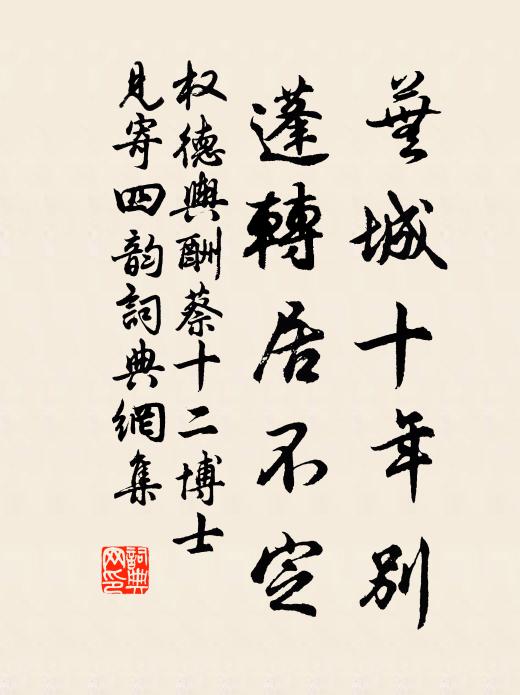 蕪城十年別
蓬轉居不定
权德輿酬蔡十二博士
見寄四韵詞典網集
詞典
网印